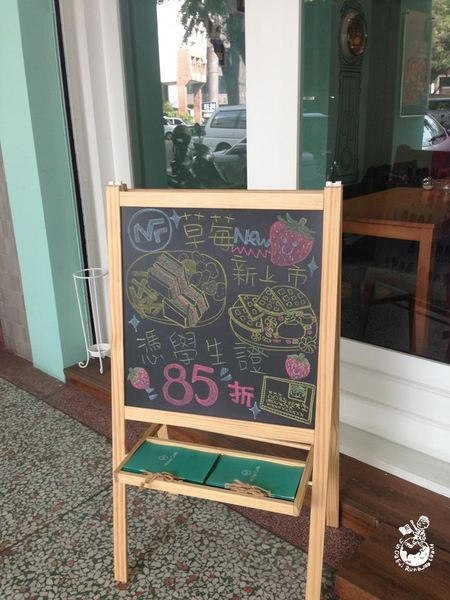 NF 草莓 New
新上市
憑學生證
85折